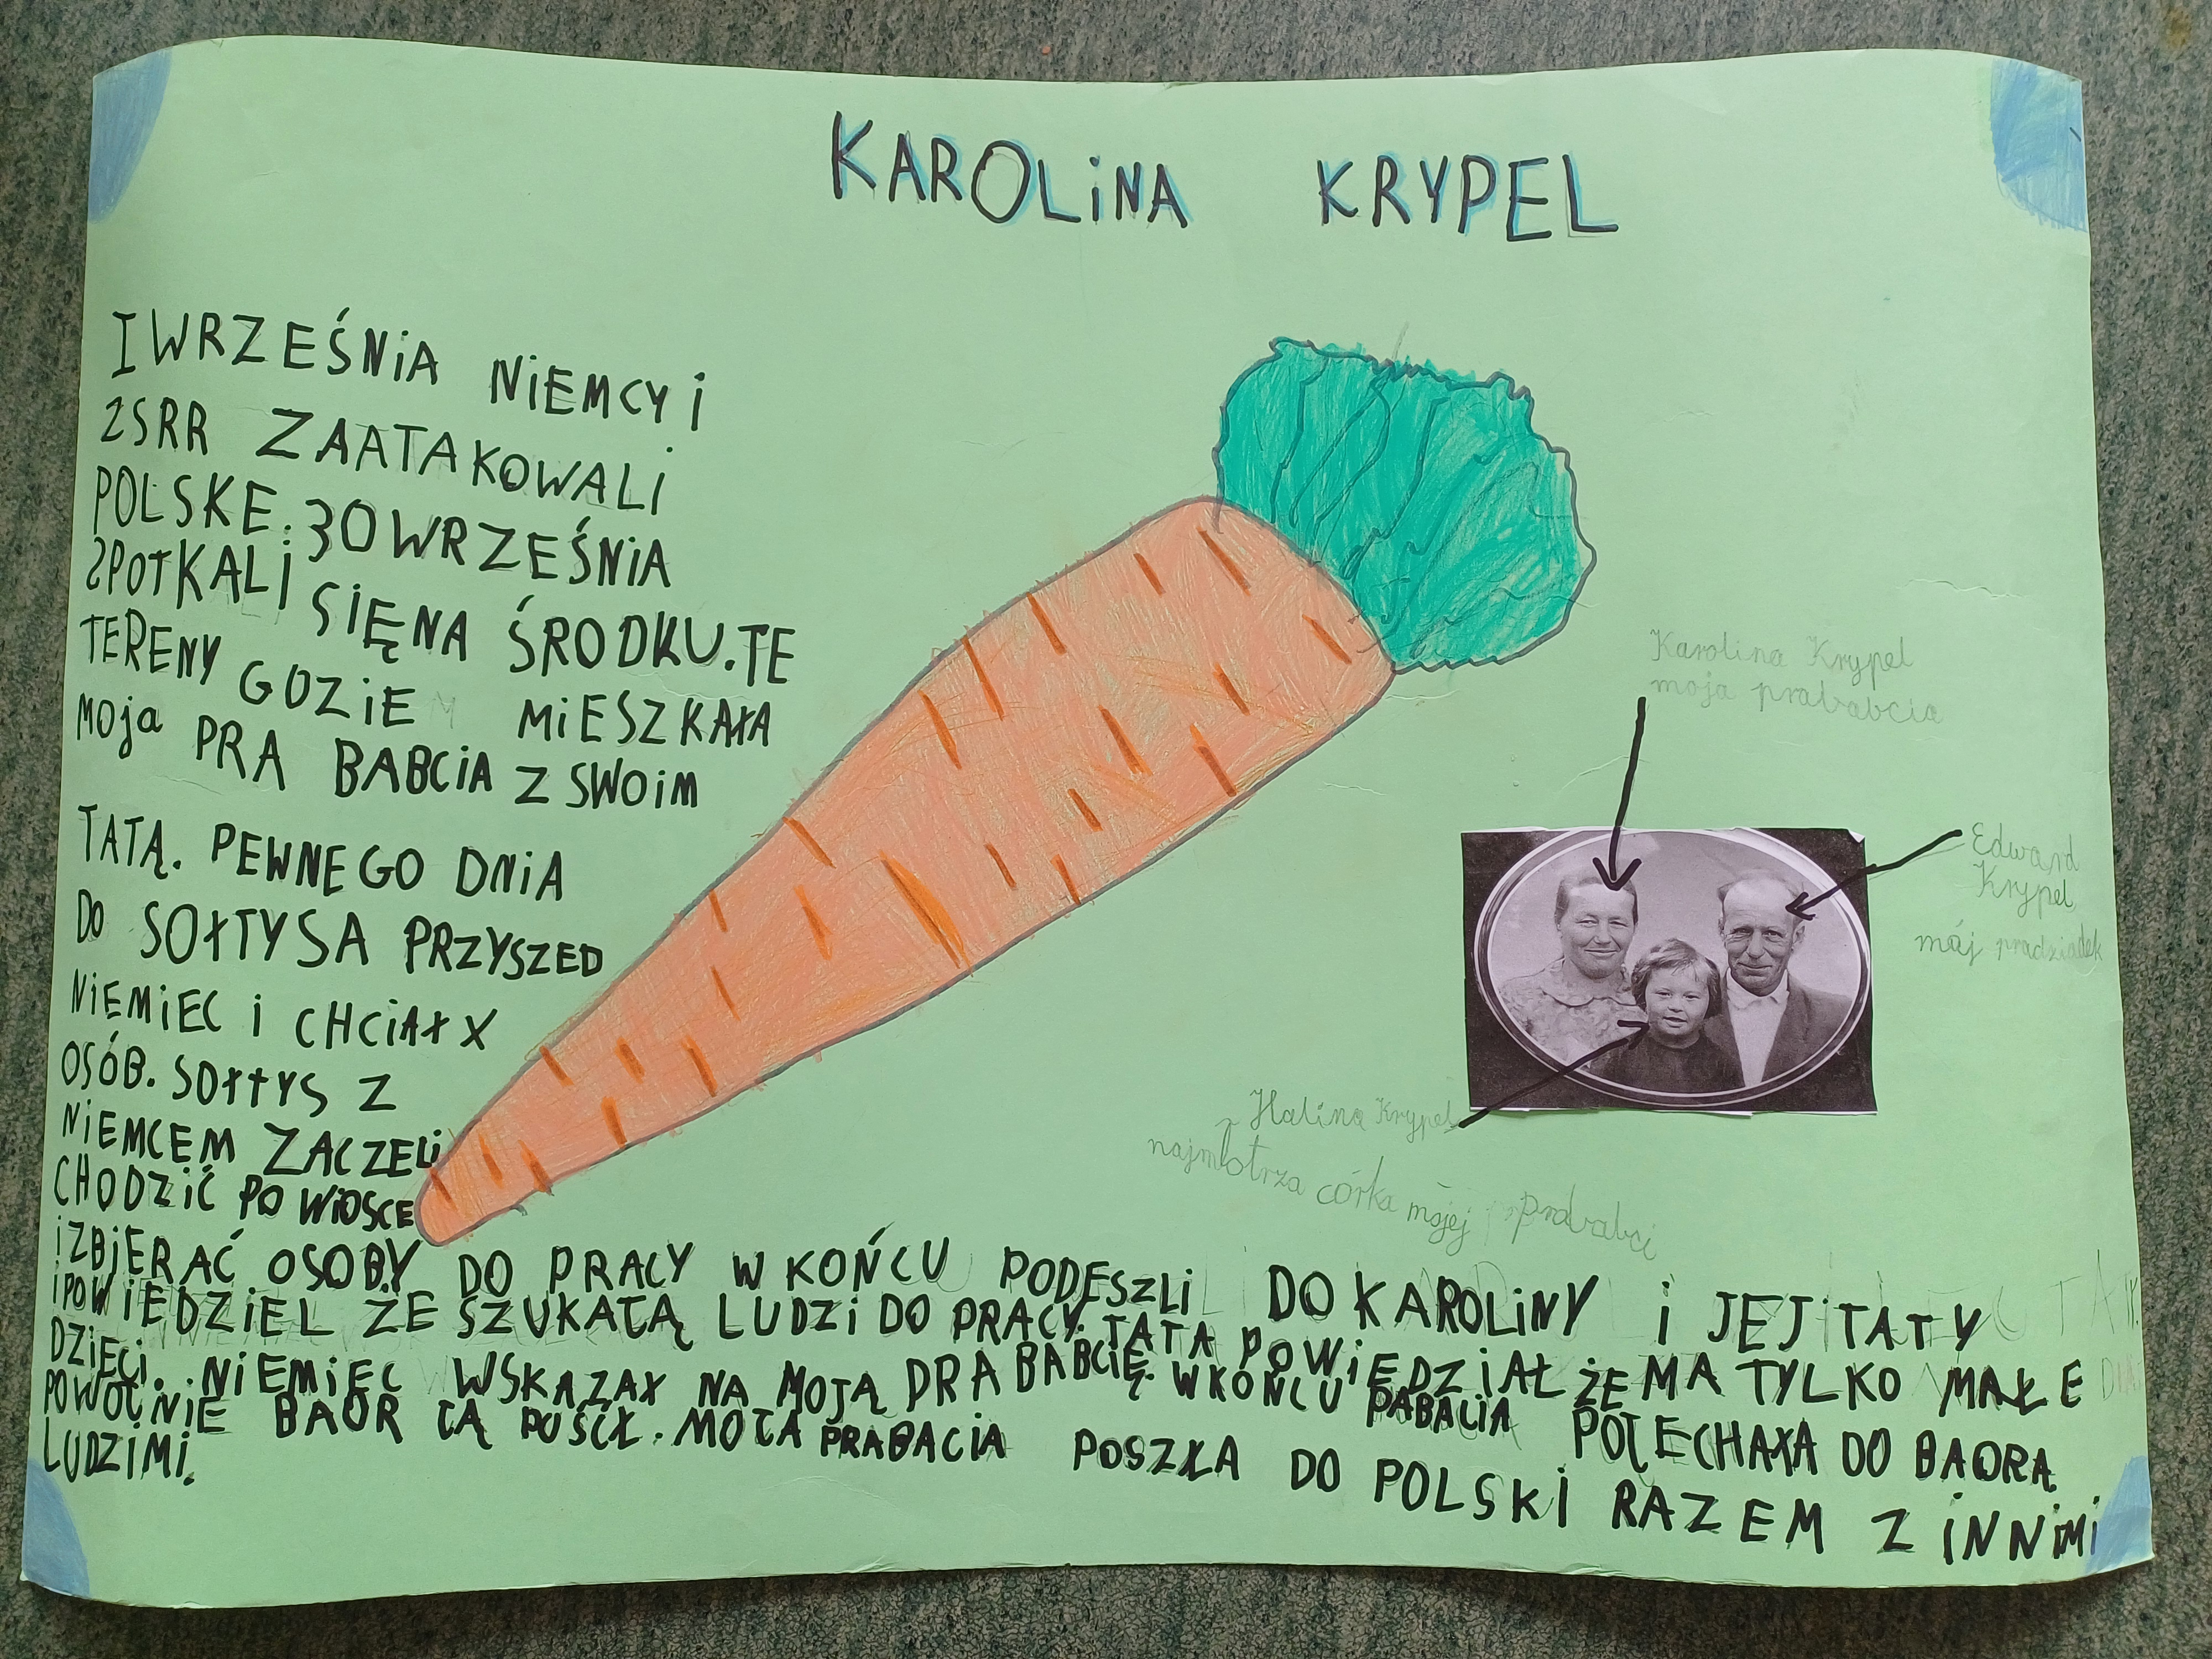 KAROLINA KRYPEL
I WRZEŚNIA NIEMCY I
ZSRR ZAATAKOWALI
POLSKE. 30 WRZEŚNIA
SPOTKALI SIĘ NA ŚRODKU. TE
TERENY GDZIE MIESZKAŁA
MOJA PRA BABCIA Z SWOIM
TATĄ. PEWNEGO DNIA
DO SOŁTYSA PRZYSZED
NIEMIEC I CHCIAŁ X
OSÓB. SOŁTYS Z
NIEMCEM ZACZELI
CHODZIĆ PO WIOSCE
I ZBIERAĆ OSOBY DO PRACY W KOŃCU PODESZLI DO KAROLINY I JEJ TATY
I POWIEDZIEL ŻE SZUKAJĄ LUDZI DO PRACY. TATA POWIEDZIAŁ ŻE MA TYLKO MAŁE
DZIECI. NIEMIEC WSKAZAŁ NA MOJĄ PRA BABCIĘ. W KOŃCU PABACIA POJECHAŁA DO BAORĄ
POWOJNIE BAOR JĄ PUŚCŁ. MOJA PRABACIA POSZŁA DO POLSKI RAZEM Z INNIMI
LUDZIMI.
Karolina Krypel
moja prababcia
Edward
Krypel
mój pradziadek
Halina Krypel
najmłotrza córka mojej prababci